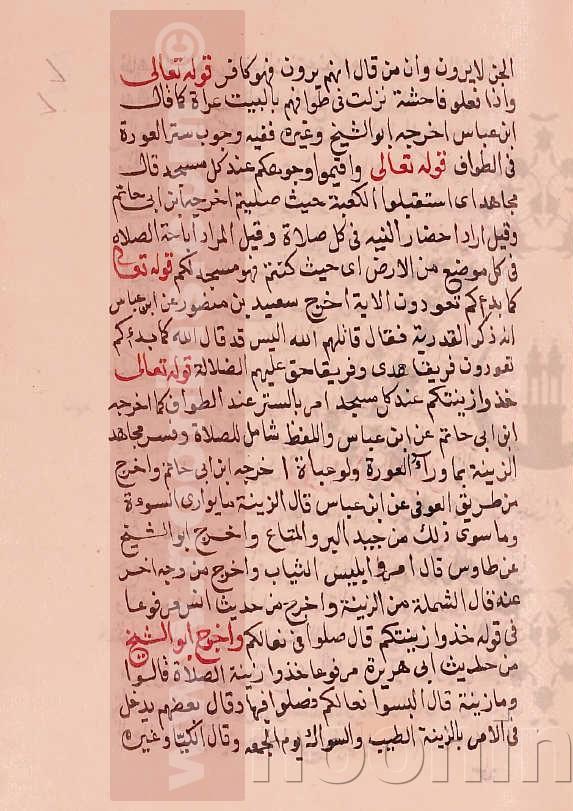 الجن لا يرون وان من قال انهم يرون فهو كافر قوله تعالى
واذا فعلوا فاحشة نزلت فى طوافهم بالبيت عراة كما قال
ابن عباس اخرجه ابو الشيخ وغيره ففيه وجوب ستر العورة
فى الطواف قوله تعالى واقيموا وجوهكم عند كل مسجد قال
مجاهد اى استقبلوا الكعبة حيث صليتم اخرجه ابن ابى حاتم
وقيل اراد احضار النيه فى كل صلاة وقيل المراد اباحة الصلاه
فى كل موضع من الارض اى حيث كنتم فهو مسجد لكم قوله تعالى
كما بدءكم تعودون الاية اخرج سعيد بن منصور عن ابن عباس
انه ذكر القدرية فقال قاتلهم الله اليس قد قال الله كما بدءكم
تعودون فريقا هدى وفريقا حق عليهم الضلالة قوله تعالى
خذوا زينتكم عند كل مسجد امر بالستر عند الطواف كما اخرجه
ابن ابى حاتم عن ابن عباس واللفظ شامل للصلاة وفسر مجاهد
الزينة بما وراى العورة ولو عباة اخرجه ابن ابى حاتم واخرج
من طريق العوفى عن ابن عباس قال الزينة ما يوارى السوءة
وما سوى ذلك من جيد البز والمتاع واخرج ابو الشيخ
عن طاوس قال امروا بلبس الثياب واخرج من وجه اخر
عنه قال الشملة من الزينة واخرج من حديث انس مرفوعا
فى قوله خذوا زينتكم قال صلوا فى نعالكم واخرج ابو الشيخ
من حديث ابى هريرة مرفوعا خذوا زينة الصلاة قالوا
وما زينة قال البسوا نعالكم فصلوا فيها وقال بعضهم يدخل
فى الامر بالزينة الطيب والسواك يوم الجمعه وقال الكيا وغيره
noorlin